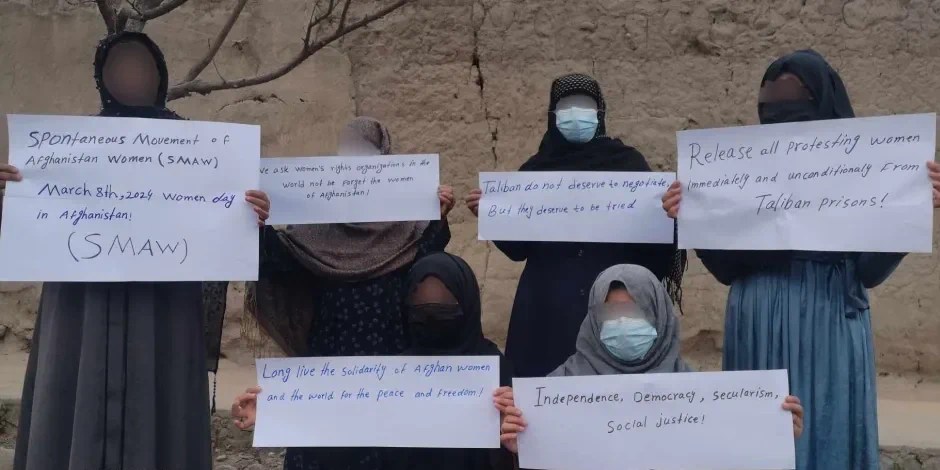 Spontaneous Movement of
Afghanistan Women (SMAW)
March 8th, 2024 Women day
in Afghanistan!
(SMAW)
ask women's rights organizations in the
world not be forget the women
of Afghanistan!
Taliban do not deserve to negotiate,
But they deserve to be tried
Release all protesting women
immediately and unconditionaly from
Taliban prisons!
Long live the solidarity of Afghan women
and the world for the peace and freedom!
Independence, Democracy, secularism,
Social justice!